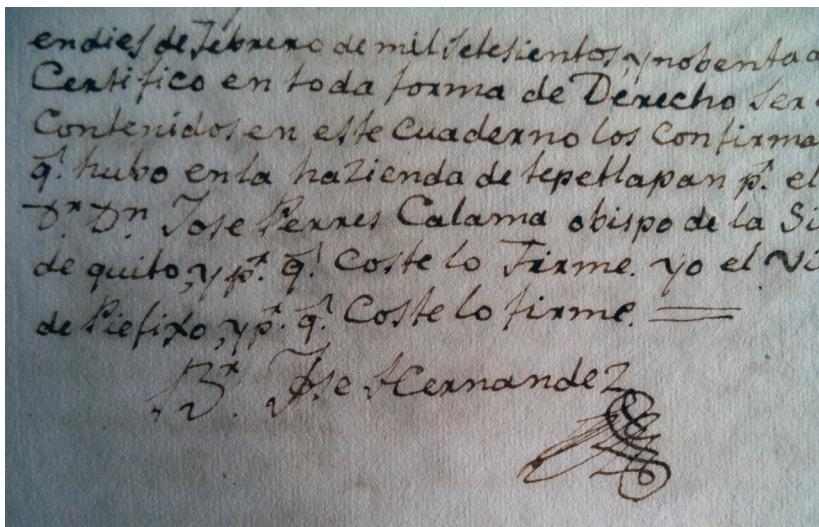 endies de Febrero de mil setesientos, y nobenta a
Certifico en toda forma de Derecho Ser
Contenidos en este cuaderno los Confirma
q.ͤ hubo en la hazienda de tepetlapan p.ʳ el
D.ʳ D.ⁿ Jose Perres Calama obispo de la Si
de quito, y p.ᵃ q.ͤ Coste lo Firme. yo el Vi
de Piefixo, y p.ᵃ q.ͤ Coste lo firme.
B.ʳ Jose Hernandez